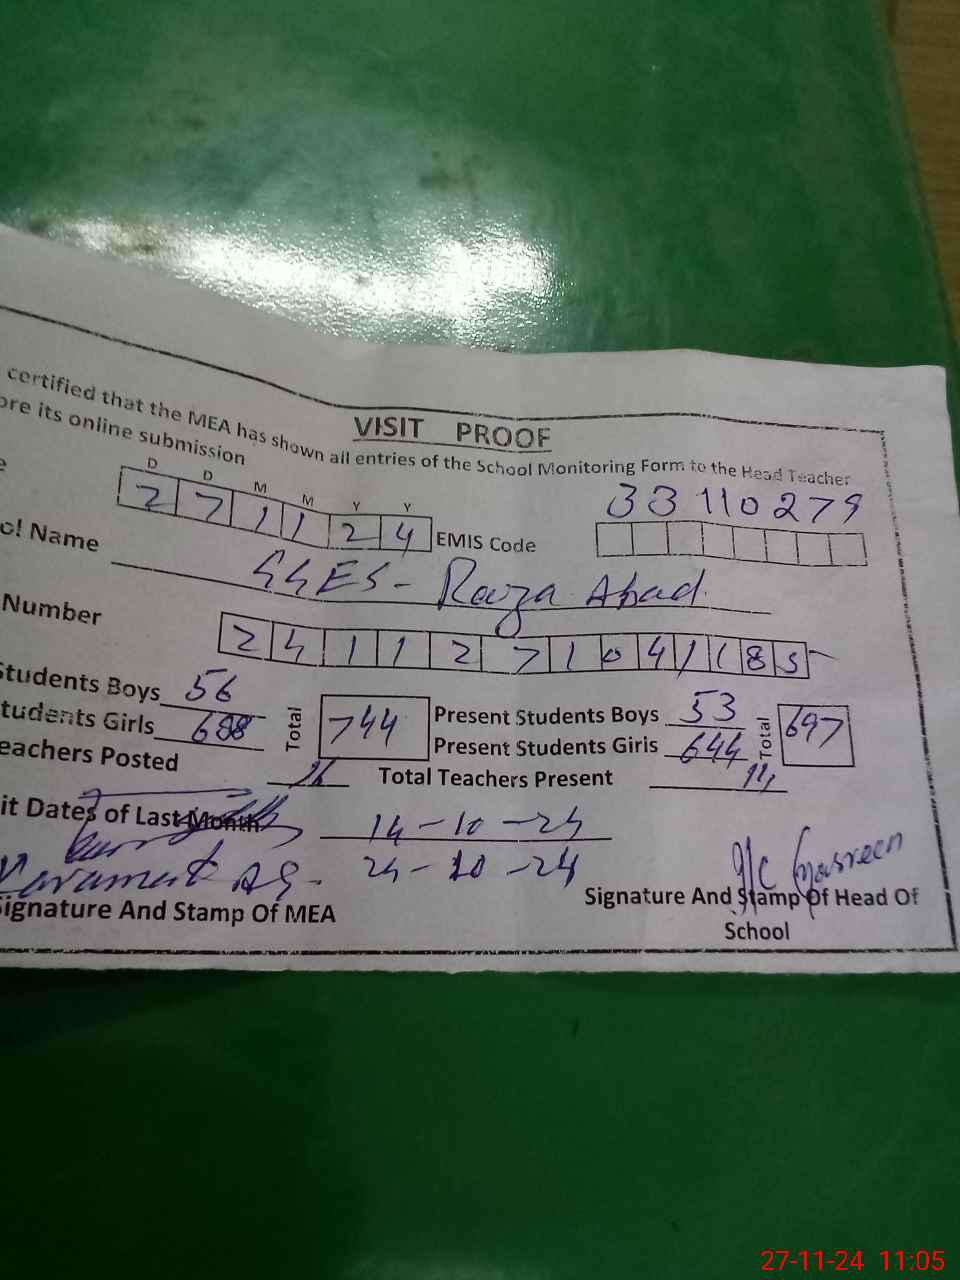 certified that the MEA has shown all entries of the School Monitoring Form to the Head Teacher
ore its online submission
VISIT PROOF
D D M M Y Y
2 7 1 1 2 4 EMIS Code 33110279
ol Name GGES - Raza Abad
Number 2 4 1 1 2 7 1 0 4 1 1 8 5
Students Boys 56
tudents Girls 688
Total 744
Present Students Boys 53
Present Students Girls 644
Total 697
eachers Posted
Total Teachers Present
it Dates of Last Month 14-10-24
24-10-24
Signature And Stamp Of MEA
I/C
Signature And Stamp Of Head Of
School
27-11-24 11:05